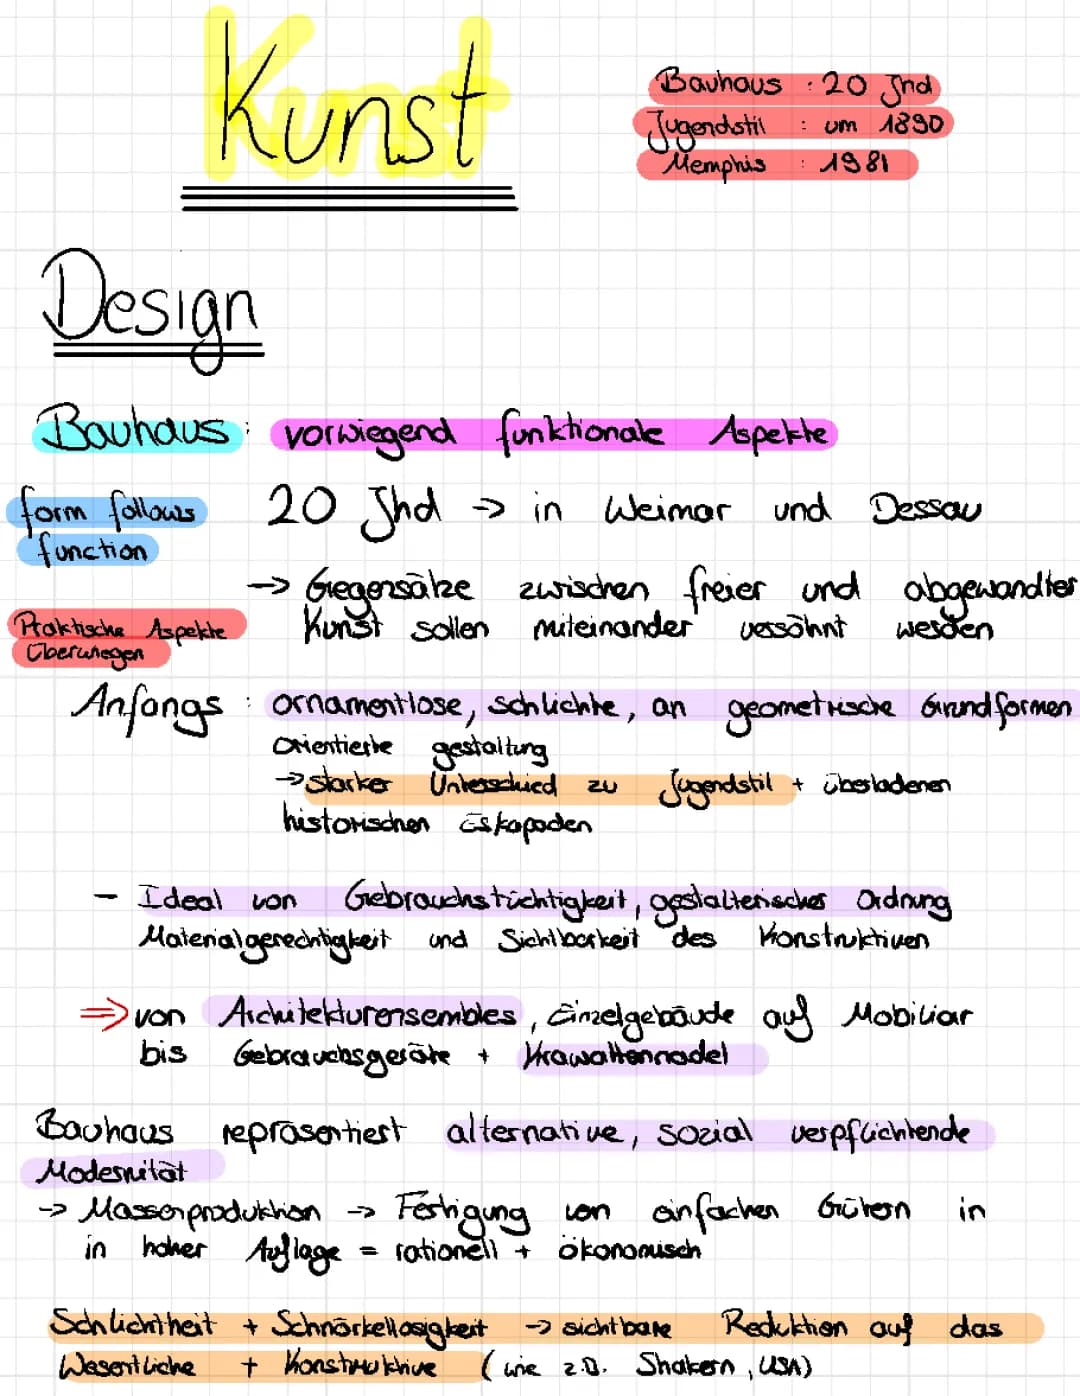 Kunst
Bauhaus : 20 Jhd
Jugendstil : um 1890
Memphis : 1981
Design
Bauhaus: vorwiegend funktionale Aspekte
form follows
function
20 Jhd -> in Weimar und Dessau
-> Gegensätze zwischen freier und abgewandter
Kunst sollen miteinander versöhnt werden
Praktische Aspekte
überwiegen
Anfangs : ornamentlose, schlichte, an geometrische Grundformen
orientierte gestaltung
-> starker Unterschied zu Jugendstil + überladenen
historischen Eskapaden
- Ideal von Gebrauchstüchtigkeit, gestalterischer Ordnung
Materialgerechtigkeit und Sichtbarkeit des Konstruktiven
=> von Architekturensembles, Einzelgebäude auf Mobiliar
bis Gebrauchsgeräte + Krawattennadel
Bauhaus repräsentiert alternative, sozial verpflichtende
Modernität
-> Massenproduktion -> Fertigung von einfachen Gütern in
in hoher Auflage = rationell + ökonomisch
Schlichtheit + Schnörkellosigkeit -> sichtbare Reduktion auf das
Wesentliche + Konstruktive (wie z.B. Shakern, USA)